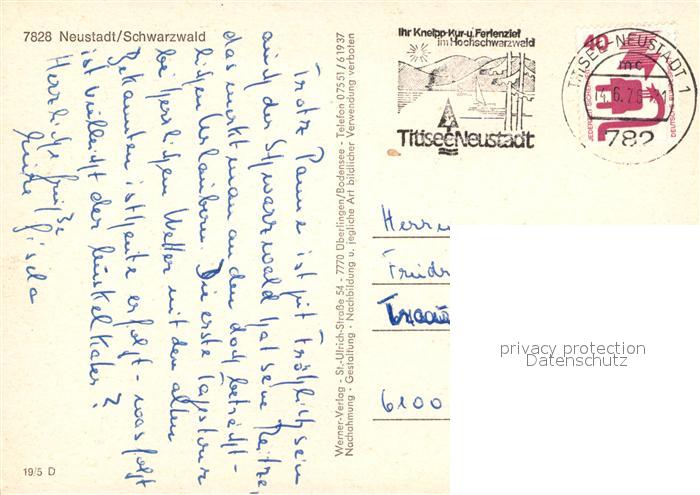 7828 Neustadt/Schwarzwald
Trotz Panne ist gut Fröhlich sein
auch der Schwarzwald hat seine Reize,
das merkt man an den doch beträcht-
lichen Urlaubern. Die erste Tagestour
bei herrlichem Wetter mit den alten
Bekannten ist heute erfolgt - was folgt
ist vielleicht der Muskelkater?
Herzliche Grüße
Gisela
19/5 D
Werner-Verlag - St.-Ulrich-Straße 54 - 7770 Überlingen/Bodensee - Telefon 07551/61937
Nachahmung - Gestaltung - Nachbildung u. jegliche Art bildlicher Verwendung verboten
Ihr Kneipp-Kur-u. Ferienziel
im Hochschwarzwald
Titisee Neustadt
TITISEE-NEUSTADT 1
mc
782
40
Herrn
Friedr
6100
privacy protection
Datenschutz